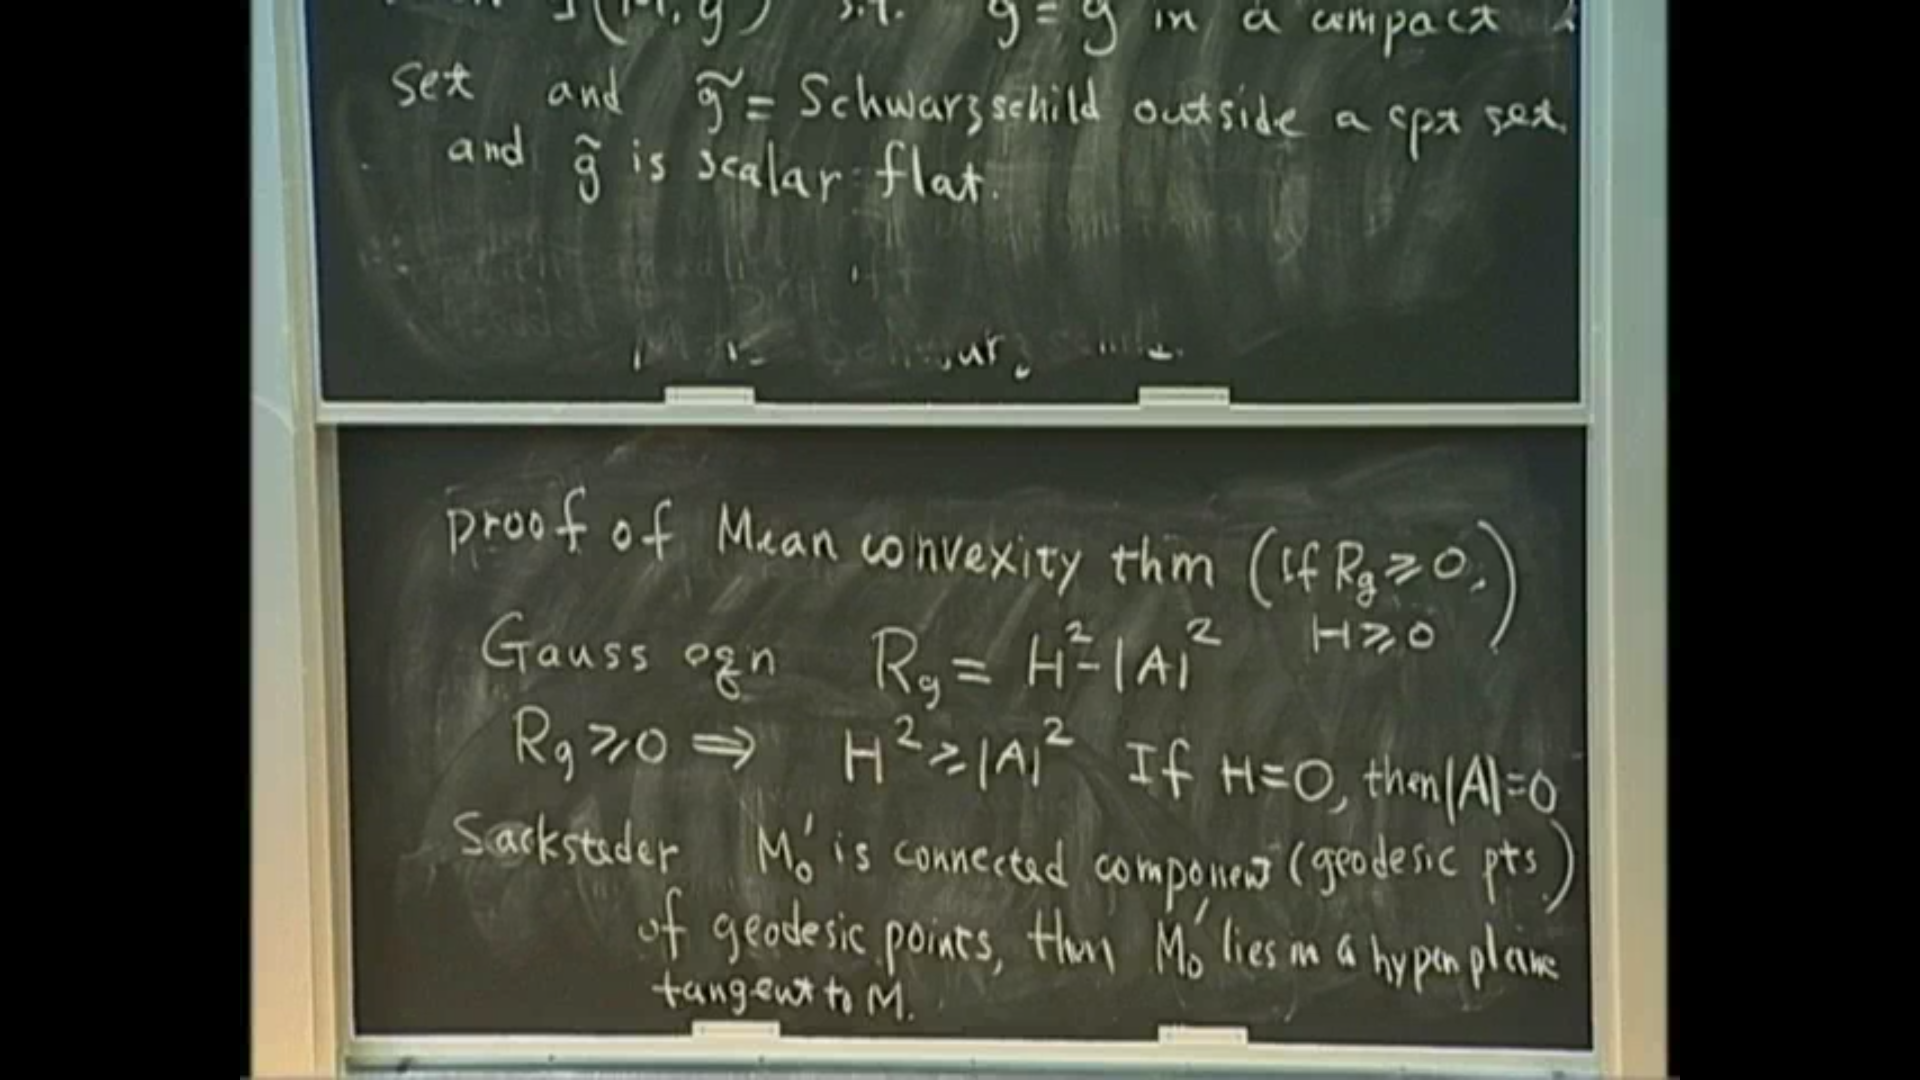 ∃(M, g̃) s.t. g̃ = g in a compact
set and g̃ = Schwarzschild outside a cpt set.
and g̃ is scalar flat.
proof of Mean convexity thm (If R_g ≥ 0, H ≥ 0)
Gauss eqn R_g = H² - |A|²
R_g ≥ 0 ⇒ H² ≥ |A|² If H=0, then |A|=0
Sacksteder M₀' is connected component (geodesic pts)
of geodesic points, then M₀' lies in a hyperplane
tangent to M.